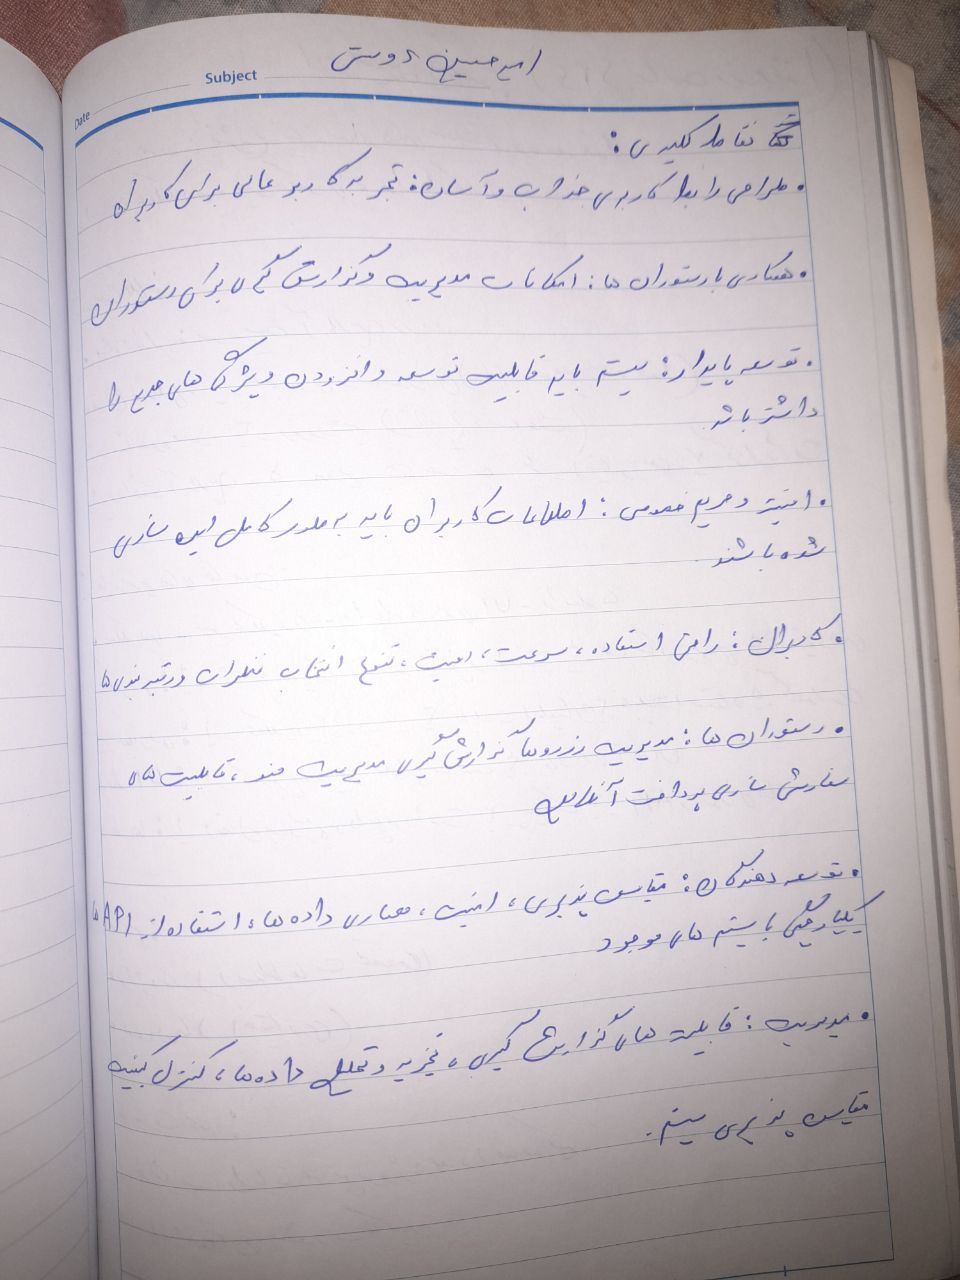 Date
Subject
امیرحسین دوستی
نقاط کلیدی:
• طراحی رابط کاربری جذاب و آسان: تجربه کاربر عالی برای کاربران
• همکاری با رستوران ها: امکانات مدیریت و گزارش گیری برای رستوران
• توسعه پایدار: سیستم باید قابلیت توسعه و افزودن ویژگی های جدید را
داشته باشد.
• امنیت و حریم خصوصی: اطلاعات کاربران باید به طور کامل ایمن سازی
شده باشند
• کاربران: راحتی استفاده، سرعت، امنیت، تنوع انتخاب نظرات و رتبه بندی ها
• رستوران ها: مدیریت رزروها گزارش گیری مدیریت منو، قابلیت های
سفارشی سازی پرداخت آنلاین
• توسعه دهندگان: مقیاس پذیری، امنیت، معماری داده ها، استفاده از API ها
یکپارچگی با سیستم های موجود
• مدیریت: قابلیت های گزارش گیری، تجزیه و تحلیل داده ها، کنترل
مقیاس پذیری سیستم.